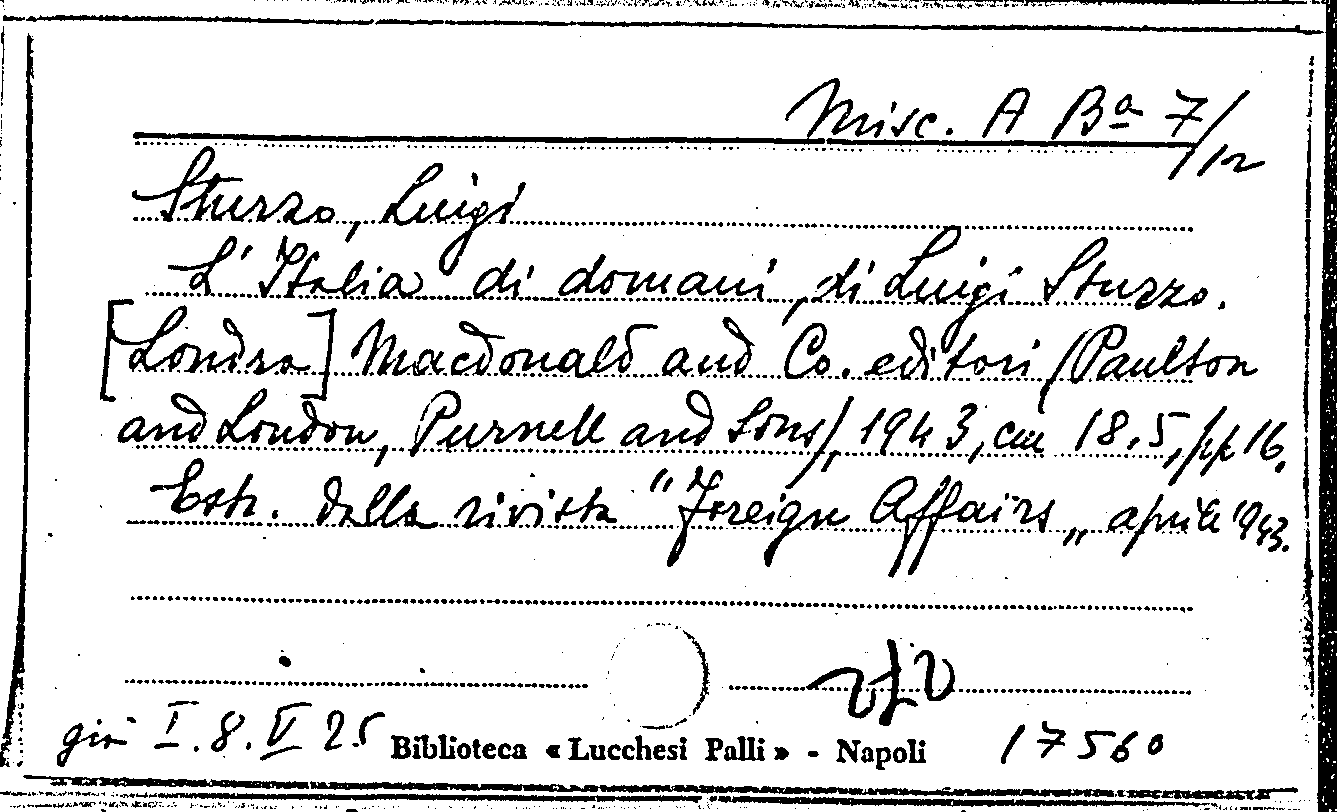 Misc. A Bª 7/12
Sturzo, Luigi
L'Italia di domani, di Luigi Sturzo.
[Londra] Macdonald and Co. editori (Paulton
and London, Purnell and Sons), 1943, cm 18.5, pp 16.
Estr. dalla rivista "Foreign Affairs„ aprile 1943.
già I.8.V 25 Biblioteca « Lucchesi Palli » - Napoli 17560